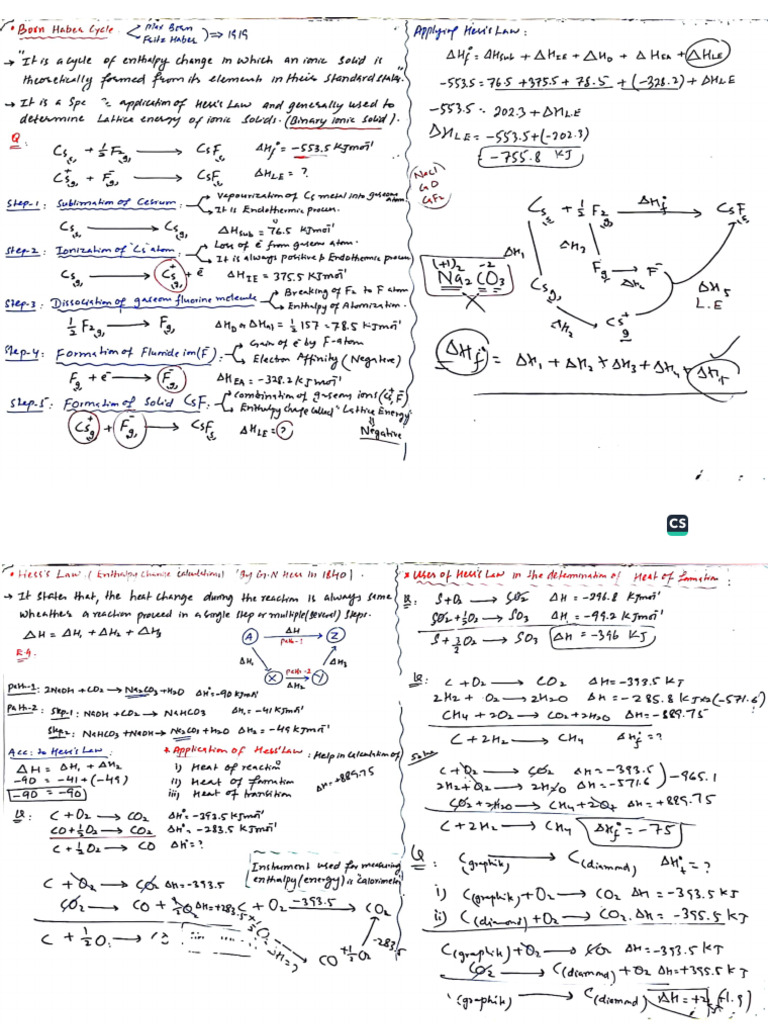 • Born Haber Cycle < Max Born
Fritz Haber } ⇒ 1919
→ "It is a cycle of enthalpy change in which an ionic solid is
theoretically formed from its elements in their standard states."
→ It is a Spe application of Hess's Law and generally used to
determine Lattice energy of ionic Solids. (Binary ionic Solid).
Q:
Cs(s) + 1/2 F2(g) ⟶ CsF(s) ΔHf° = -553.5 KJmol⁻¹
Cs⁺(g) + F⁻(g) ⟶ CsF(s) ΔHLE = ?
Step-1: Sublimation of Cesium: → Vapourization of Cs metal into gaseous atom
→ It is Endothermic process.
Cs(s) ⟶ Cs(g) ΔHsub = 76.5 KJmol⁻¹
Step-2: Ionization of "Cs" atom: → Loss of e⁻ from gaseous atom.
→ It is always positive & Endothermic process
Cs(g) ⟶ Cs⁺(g) + e⁻ ΔHIE = 375.5 KJmol⁻¹
Step-3: Dissociation of gaseous fluorine molecule → Breaking of F2 to F atom
→ Enthalpy of Atomization.
1/2 F2(g) ⟶ F(g) ΔHD or ΔHat = 1/2 157 = 78.5 KJmol⁻¹
Step-4: Formation of Fluride ion (F⁻) → Gain of e⁻ by F-atom
→ Electron Affinity (Negative)
F(g) + e⁻ ⟶ F⁻(g) ΔHEA = -328.2 KJmol⁻¹
Step-5: Formation of Solid CsF: → Combination of gaseous ions (Cs⁺, F⁻)
→ Enthalpy change called "Lattice Energy"
Cs⁺(g) + F⁻(g) ⟶ CsF(s) ΔHLE = ? Negative
Applying of Hess's Law:
ΔHf° = ΔHsub + ΔHIE + ΔHD + ΔHEA + ΔHLE
-553.5 = 76.5 + 375.5 + 78.5 + (-328.2) + ΔHLE
-553.5 = 202.3 + ΔHLE
ΔHLE = -553.5 + (-202.3)
-755.8 KJ
NaCl
CaF2
Cs(s) + 1/2 F2(g) ⟶ CsF(s) ΔHf°
ΔH1 ΔH2
F(g) ⟶ F⁻ ΔH2
(+1)2 -2
Na2CO3
Cs(g) ΔH5
L.E
ΔH2 Cs⁺(g)
ΔHf° = ΔH1 + ΔH2 + ΔH3 + ΔH4 + ΔH5
CS
• Hess's Law: (Enthalpy Change Calculations) (By G.N Hess in 1840).
→ It states that, the heat change during the reaction is always same
wheather a reaction proceed in a single step or multiple (several) steps.
ΔH = ΔH1 + ΔH2 + ΔH3
E.g. A ΔH Z
path-1
ΔH1 ΔH3
X path-2 Y
ΔH2
path-1: 2NaOH + CO2 ⟶ Na2CO3 + H2O ΔH° = -90 KJmol⁻¹
path-2: Step-1: NaOH + CO2 ⟶ NaHCO3 ΔH1 = -41 KJmol⁻¹
Step-2: NaHCO3 + NaOH ⟶ Na2CO3 + H2O ΔH2 = -49 KJmol⁻¹
Acc: to Hess's Law:
ΔH = ΔH1 + ΔH2
-90 = -41 + (-49)
-90 = -90
* Application of Hess's Law: Help in Calculation of
i) Heat of reaction
ii) Heat of formation
iii) Heat of transition
ΔH = +889.75
Q: C + O2 ⟶ CO2 ΔH° = -393.5 KJmol⁻¹
CO + 1/2 O2 ⟶ CO2 ΔH° = -283.5 KJmol⁻¹
C + 1/2 O2 ⟶ CO ΔH° = ?
Instrument used for measuring
enthalpy (energy) is calorimeter
C + O2 ⟶ CO2 ΔH = -393.5
CO2 ⟶ CO + 1/2 O2 ΔH = +283.5
C + 1/2 O2 ⟶ CO
C + O2 -393.5 ⟶ CO2
1/2 O2 ΔH = ?
CO + 1/2 O2 -283.5
* Uses of Hess's Law in the determination of Heat of formation:
Q: S + O2 ⟶ SO2 ΔH = -296.8 KJmol⁻¹
SO2 + 1/2 O2 ⟶ SO3 ΔH = -99.2 KJmol⁻¹
S + 3/2 O2 ⟶ SO3 ΔH = -396 KJ
Q: C + O2 ⟶ CO2 ΔH = -393.5 KJ
2H2 + O2 ⟶ 2H2O ΔH = -285.8 KJ x2 (-571.6)
CH4 + 2O2 ⟶ CO2 + 2H2O ΔH = -889.75
C + 2H2 ⟶ CH4 ΔHf° = ?
C + O2 ⟶ CO2 ΔH = -393.5
2H2 + O2 ⟶ 2H2O ΔH = -571.6 ) -965.1
CO2 + 2H2O ⟶ CH4 + 2O2 ΔH = +889.75
C + 2H2 ⟶ CH4 ΔHf° = -75
Q: C(graphite) ⟶ C(diamond) ΔHt° = ?
i) C(graphite) + O2 ⟶ CO2 ΔH = -393.5 KJ
ii) C(diamond) + O2 ⟶ CO2. ΔH = -395.5 KJ
C(graphite) + O2 ⟶ CO2 ΔH = -393.5 KJ
CO2 ⟶ C(diamond) + O2 ΔH = +395.5 KJ
C(graphite) ⟶ C(diamond) ΔH = +2 (+1.9)